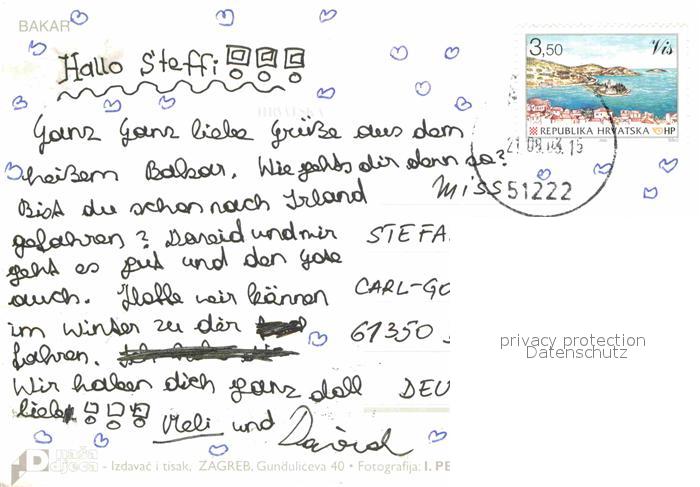 BAKAR
Hallo Steffi !!!
3,50 Vis
REPUBLIKA HRVATSKA HP
HRVATSKA
51222
Ganz Ganz liebe Grüße aus dem
heißem Bakar. Wie gehts dir denn so?
Bist du schon nach Irland
gefahren? David und mir
geht es gut und den
auch. Hoffe wir können
im Winter zu dir
fahren.
Wir haben dich ganz doll
lieb !!! Meli und David
Miss
STEFA
CARL-GO
61350
DEU
privacy protection
Datenschutz
naša djeca - Izdavač i tisak, ZAGREB, Gundulićeva 40 • Fotografija: I. PE